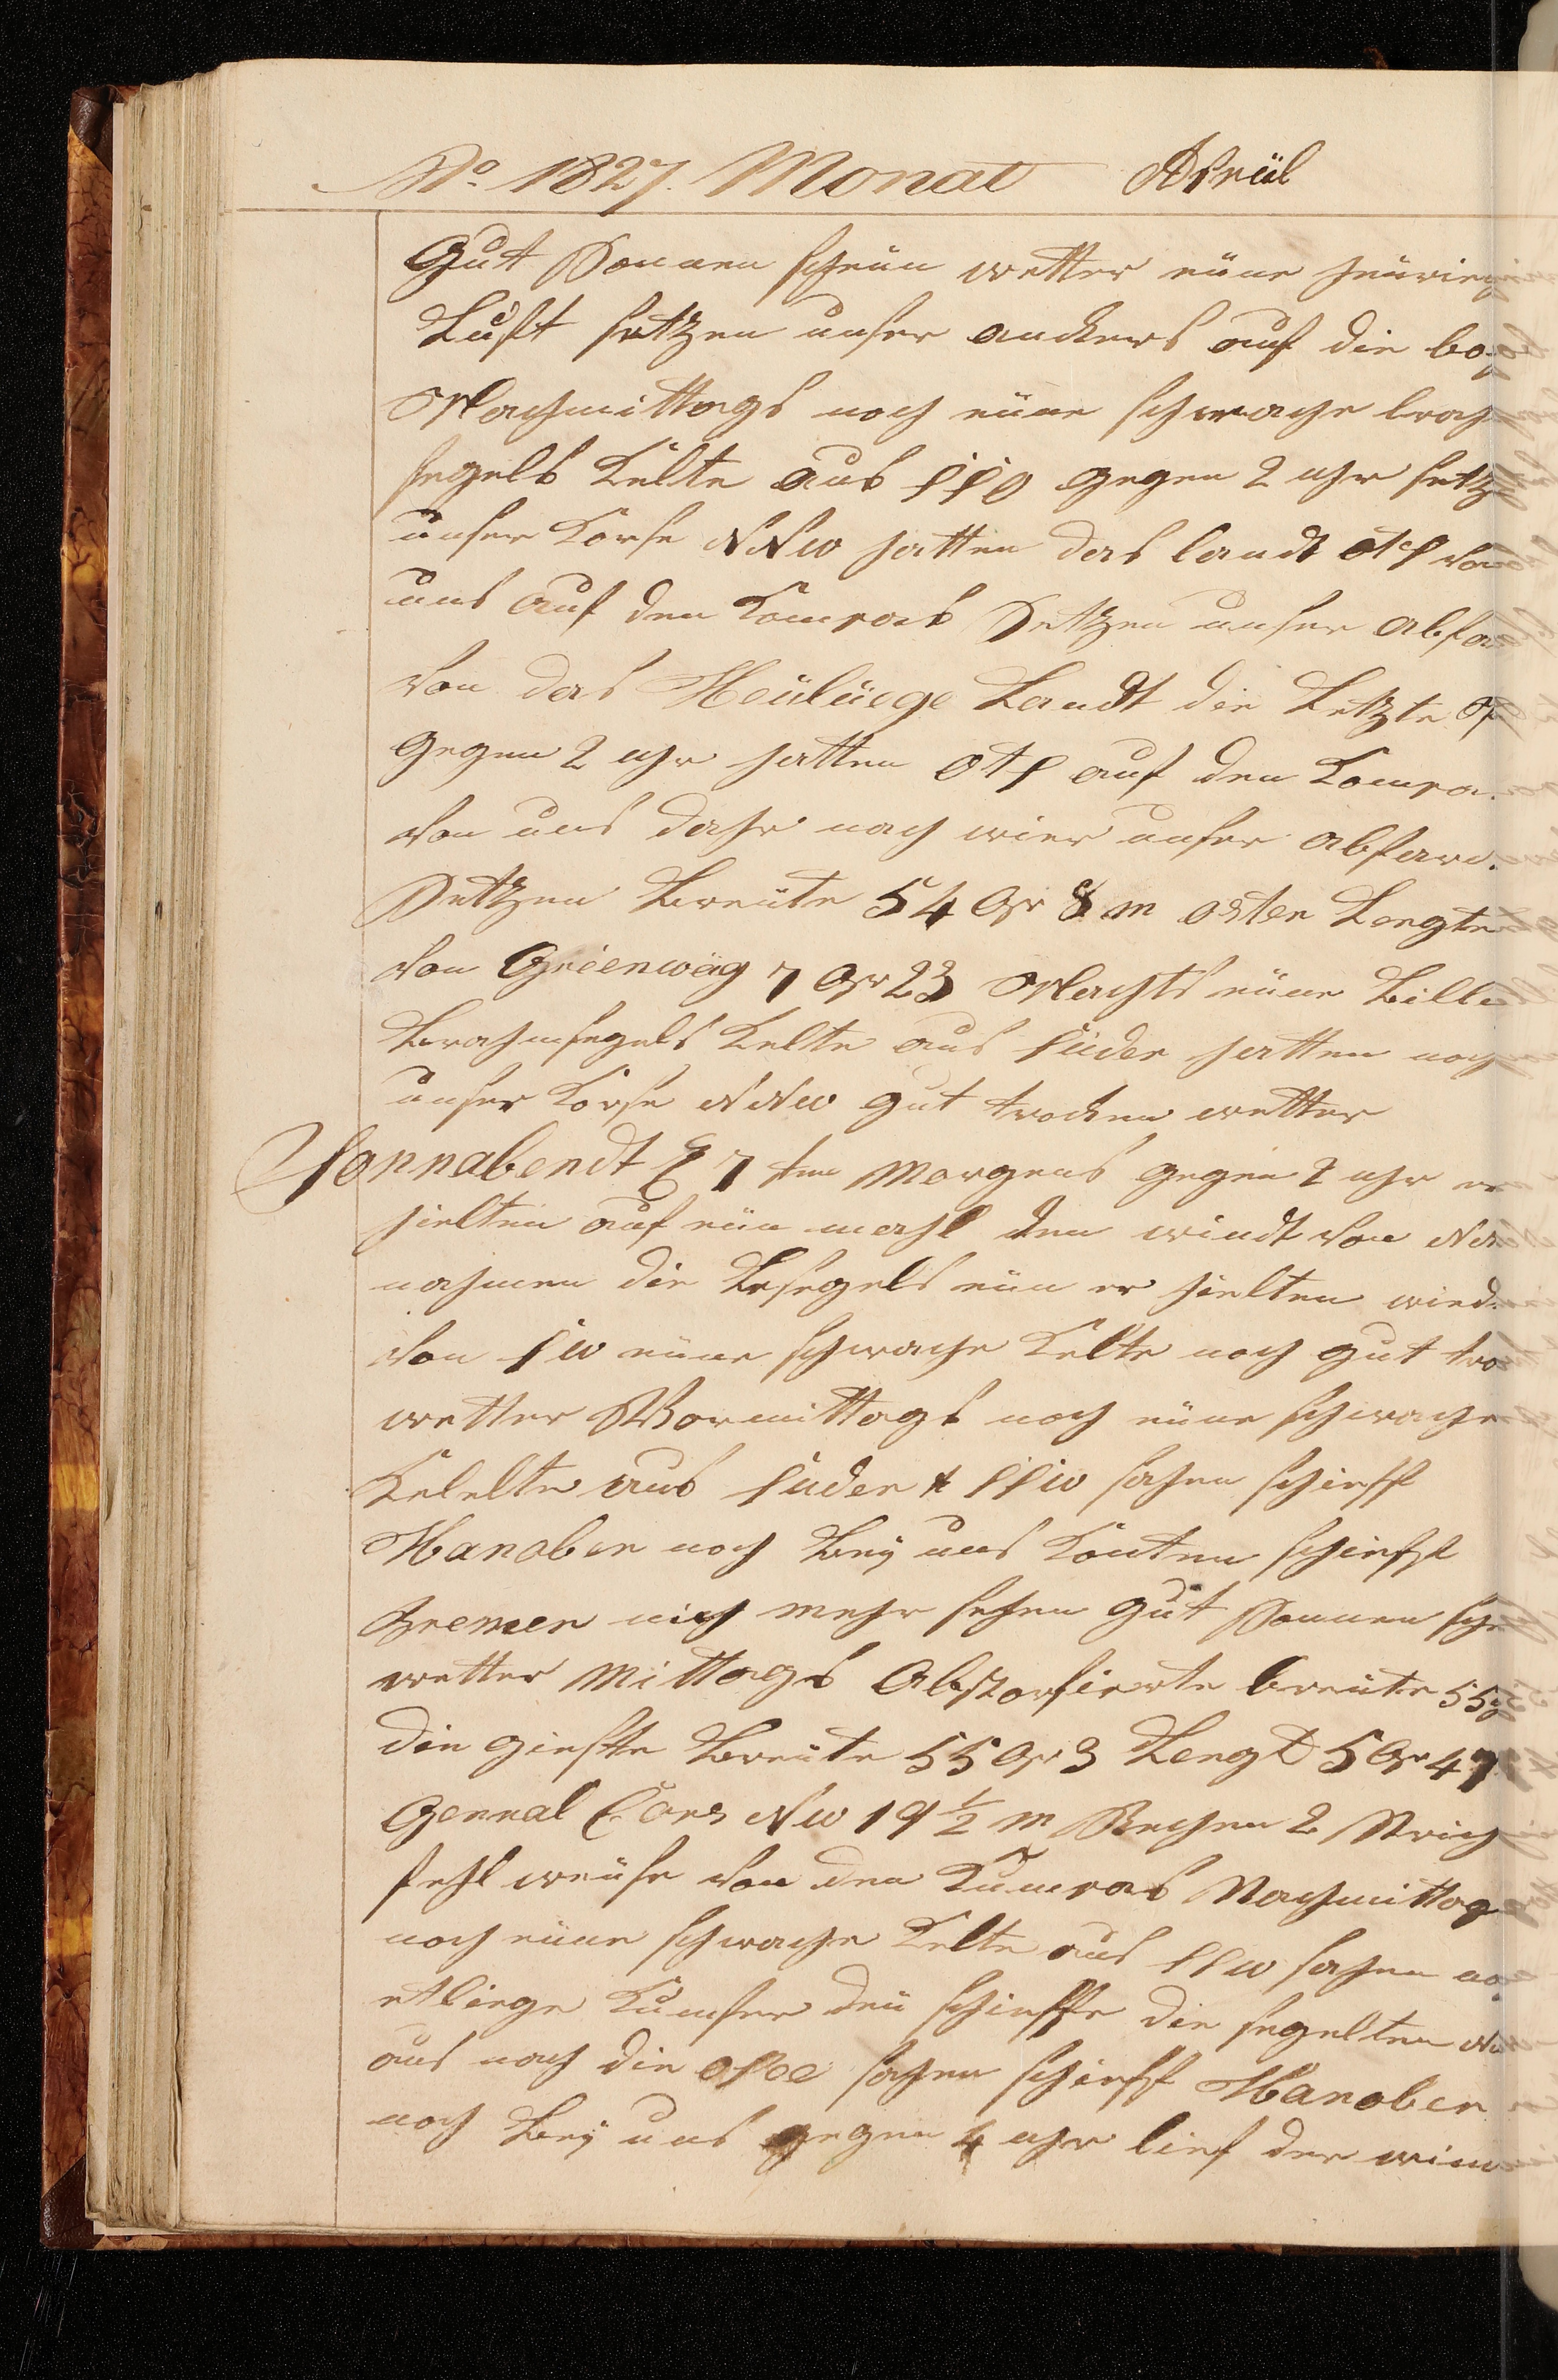 No. 1827. Monat Apriil
Gut Sonnen schein wetter eüne heürieg
Luft setzen unser anckers auf die bog
Nachmittags noch eüne schwache bra
segels Kelte aus SSO gegen 2 uhr setz
unser Corse NNW hatten das landt OtS von
uns auf den Compas Setzen unser abfa
von das Heüliege Landt die Letzte
gegen 2 uhr hatten OtS auf den Compa
von uns dahr nach wier unser abfar
Setzen Breüte 54 Gr 8 m oster Lengte
von Grienwäg 7 Gr 23 Nachts eüne
Brahmsegels Kelte aus Süder hatten noch
unser Corse NNW gut trocken wetter
Sonnabendt 7 ten Morgens gegen 2 uhr er
hielten auf eün mahl den windt von
nahmen die Leesegels eün er hielten wied
von SW eüne schwache Kelte noch gut tro
wetter Vormittags noch eüne schwache
Kelelte aus Süder t SSW sahen schieff
Hanober noch Beÿ uns Konten schieff
Bremen nich mehr sehen gut Sonnen sche
wetter Mittags Abstorfierte breüte 55 g
die gieste Breüte 55 Gr 3 Lengt 5 Gr 47
General Cors NW 19 1/2 m Rechen 2 Strich
fehl weüse von den Cumpas Nachmittag
noch eüne schwache Kelte aus SSW sahen noch
etliege Kumfer deü schieffe die segelten
aus nach die ostee sahen schieff Hanober
noch Beÿ uns gegen 4 uhr lief der win